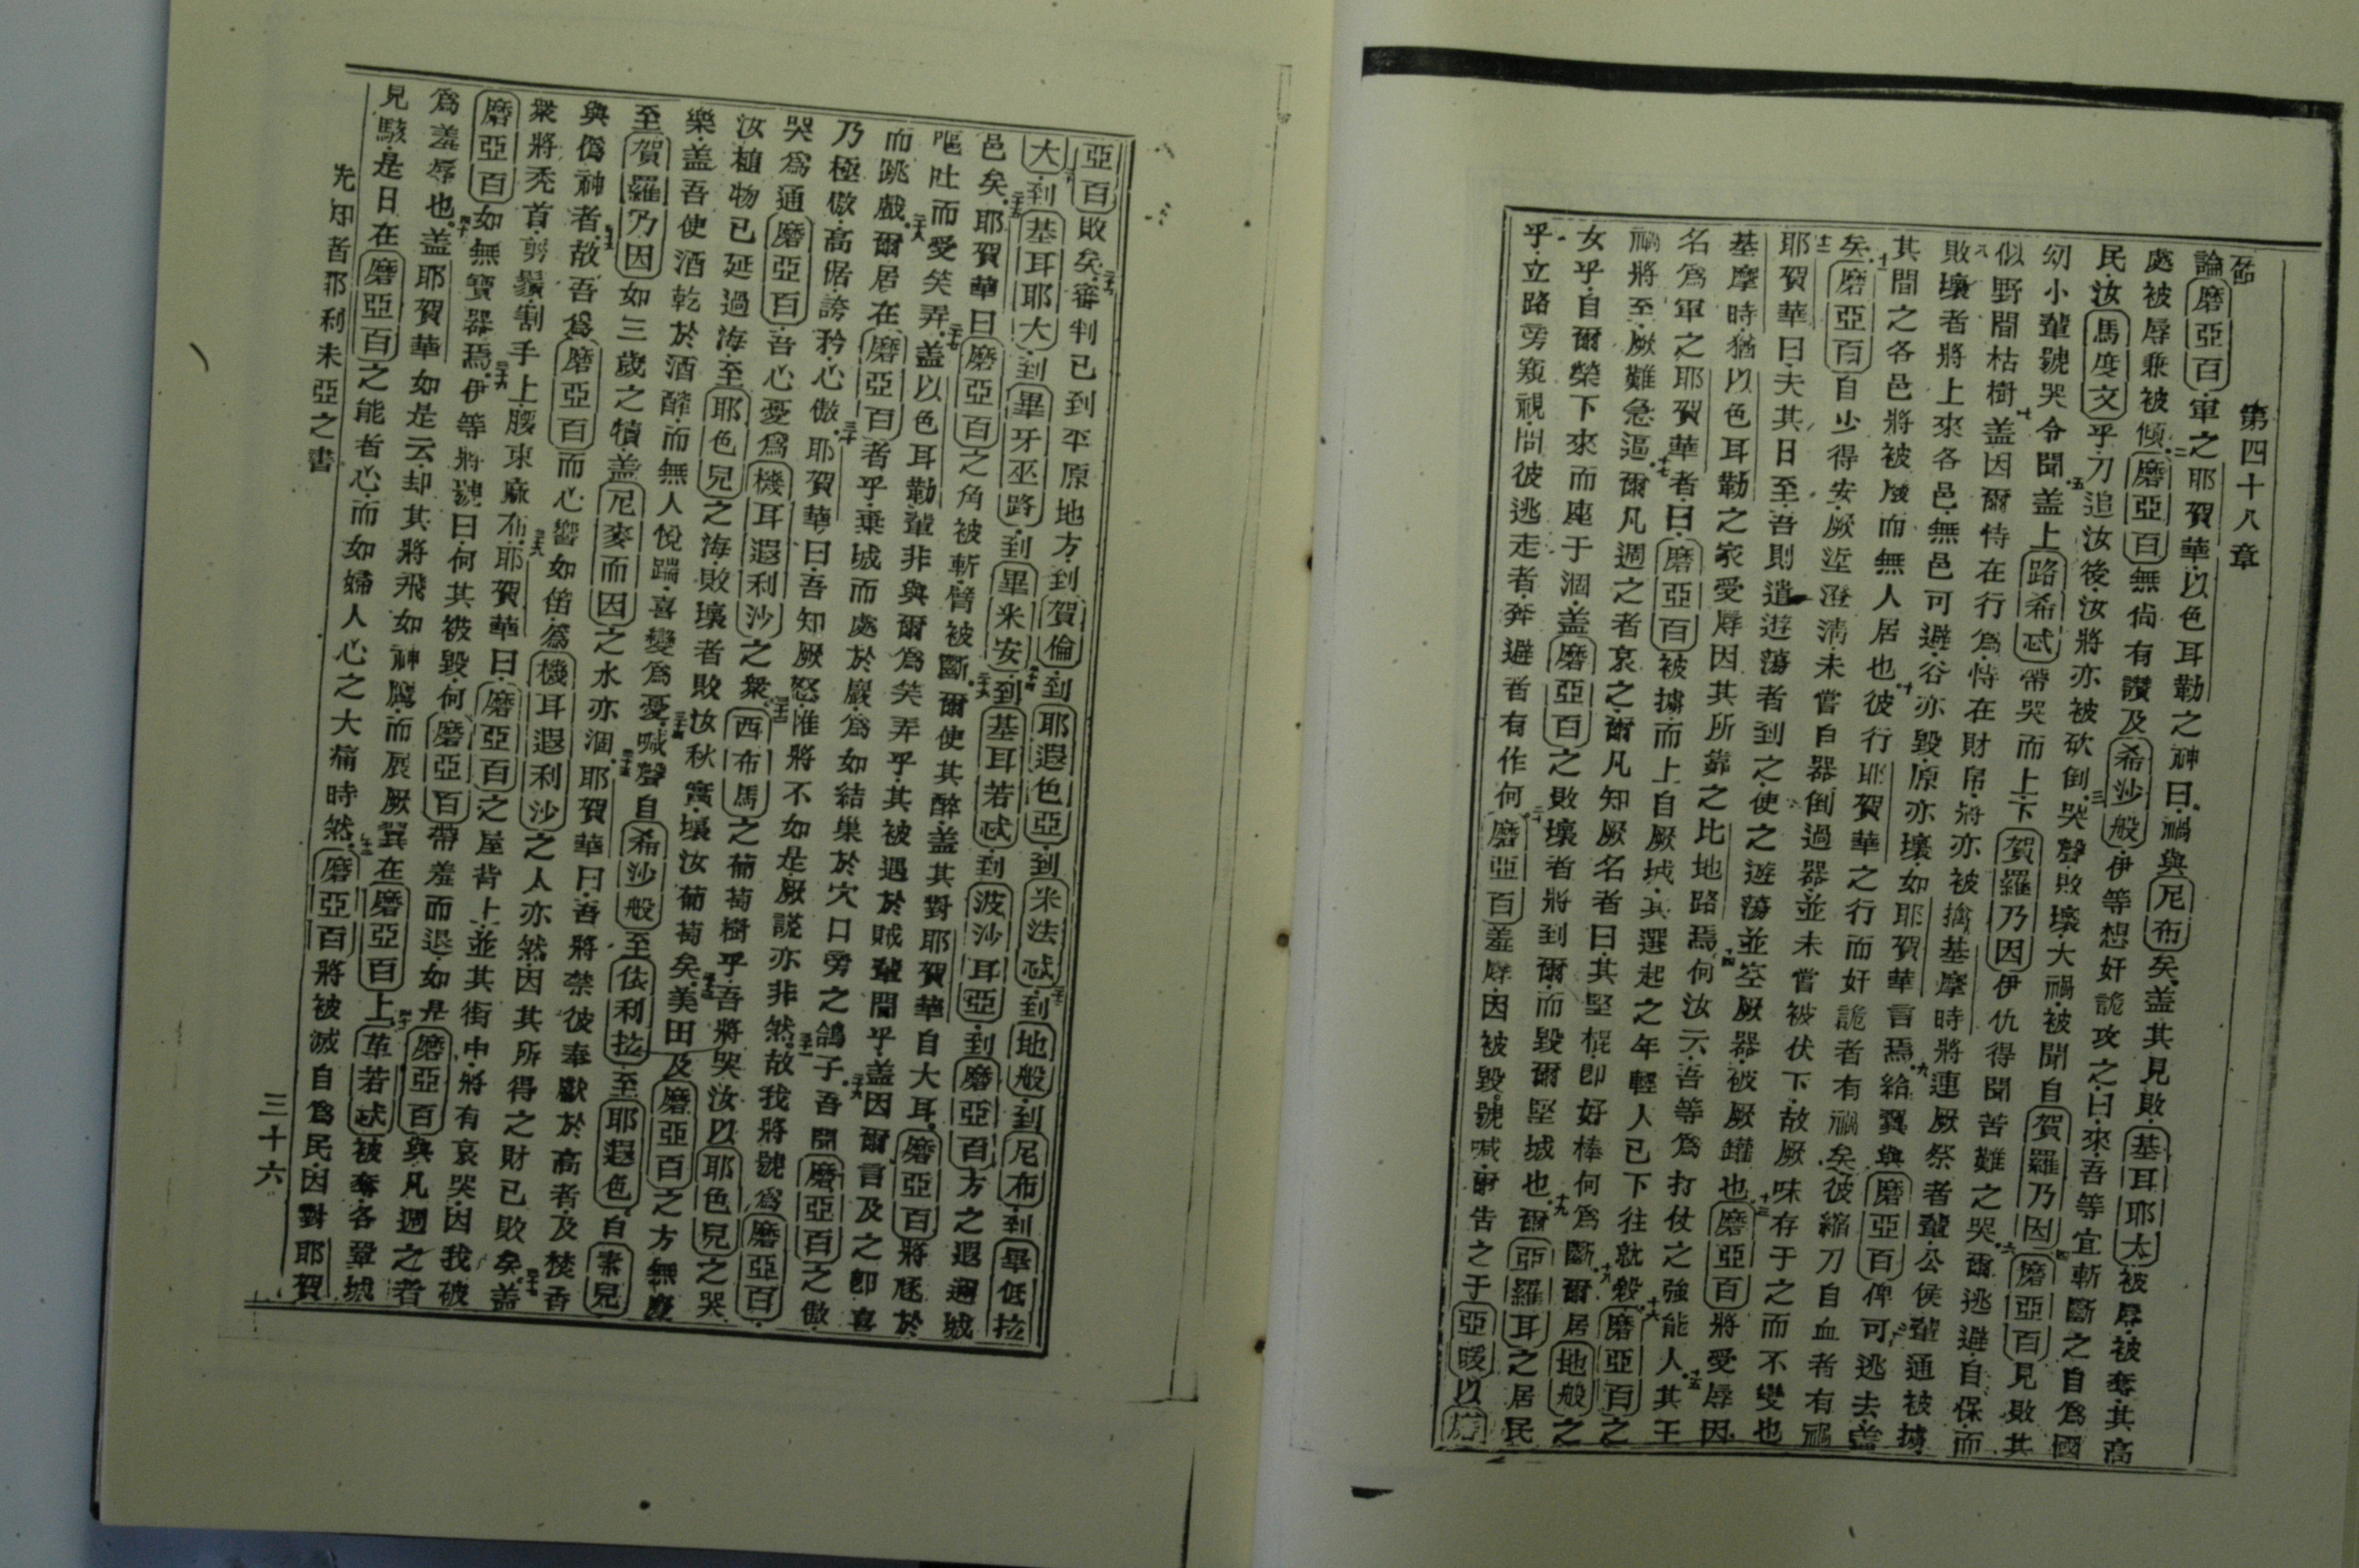 第四十八章
論磨亞百軍之耶賀華以色耳勒之神曰禍與尼布矣盖其見敗基耳耶大被辱被奪其高
處被辱兼被傾磨亞百無尙有讚及希沙般伊等想奸詭攻之曰來吾等宜斬斷之自爲國
民汝馬度文乎刀追汝後汝將亦被砍倒哭聲敗壞大禍被聞自賀羅乃因磨亞百見敗其
幼小輩號哭令聞盖上路希忒帶哭而上下賀羅乃因伊仇得聞苦難之哭爾逃避自保而
似野間枯樹盖因爾恃在行爲恃在財帛將亦被擒基摩時將連厥祭者輩公侯輩通被擄
敗壞者將上來各邑無邑可避谷亦毀原亦壞如耶賀華言焉給翼與磨亞百俾可逃去盖
其間之各邑將被廢而無人居也彼行耶賀華之行而奸詭者有禍矣彼縮刀自血者有禍
矣磨亞百自少得安厥坭澄淸未嘗自器倒過器並未嘗被伏下故厥味存于之而不變也
耶賀華曰夫其日至吾則遣遊蕩者到之使之遊蕩並空厥器被厥罐也磨亞百將受辱因
基摩時猶以色耳勒之家受辱因其所靠之比地路焉何汝云吾等爲打仗之強能人其王
名爲軍之耶賀華者曰磨亞百被擄而上自厥城其選起之年輕人已下往就殺磨亞百之
禍將至厥難急逼爾凡週之者哀之爾凡知厥名者曰其堅棍卽好棒何爲斷爾居地般之
女乎自爾榮下來而座于涸盖磨亞百之敗壞者將到爾而毀爾堅城也爾亞羅耳之居民
乎立路旁窺視問彼逃走者奔避者有作何磨亞百羞辱因被毀號喊爾告之于亞嗳以磨
亞百敗矣審判已到平原地方到賀倫到耶遐色亞到米法忒到地般到尼布到畢低拉
大到基耳耶大到畢牙巫路到畢米安到基耳若忒到波沙耳亞到磨亞百方之遐邇城
邑矣耶賀華曰磨亞百之角被斬臂被斷爾使其醉盖其對耶賀華自大耳磨亞百將逐於
嘔吐而愛笑弄盖以色耳勒輩非與爾爲笑弄乎其被遇於賊輩間乎盖因爾言及之卽喜
而跳戲爾居在磨亞百者乎棄城而處於巖爲如結巢於穴口旁之鴿子吾聞磨亞百之傲
乃極傲高倨誇矜心傲耶賀華曰吾知厥怒惟將不如是厥謊亦非然故我將號爲磨亞百
哭爲通磨亞百吾心憂爲機耳遐利沙之衆西布馬之葡萄樹乎吾將哭汝以耶色兒之哭
汝植物已延過海至耶色兒之海敗壞者敗汝秋實壞汝葡萄矣美田及磨亞百之方無慶
樂盖吾使酒乾於酒醡而無人悅踹喜變爲憂喊聲自希沙般至依利拉至耶遐色自素兒
至賀羅乃因如三歲之犢盖尼麥而因之水亦涸耶賀華曰吾將禁彼奉獻於高者及焚香
與僞神者故吾爲磨亞百而心響如笛爲機耳遐利沙之人亦然因其所得之財已敗矣盖
衆將禿首剪鬚割手上腰束麻布耶賀華曰磨亞百之屋背上並其街中將有哀哭因我破
磨亞百如無寶器焉伊等將號曰何其被毀何磨亞百帶羞而退如是磨亞百與凡週之者
爲羞辱也盖耶賀華如是云却其將飛如神鷹而展厥翼在磨亞百上革若忒被奪各鞏城
見駭是日在磨亞百之能者心而如婦人心之大痛時然磨亞百將被滅自爲民因對耶賀
先知者耶利未亞之書
三十六